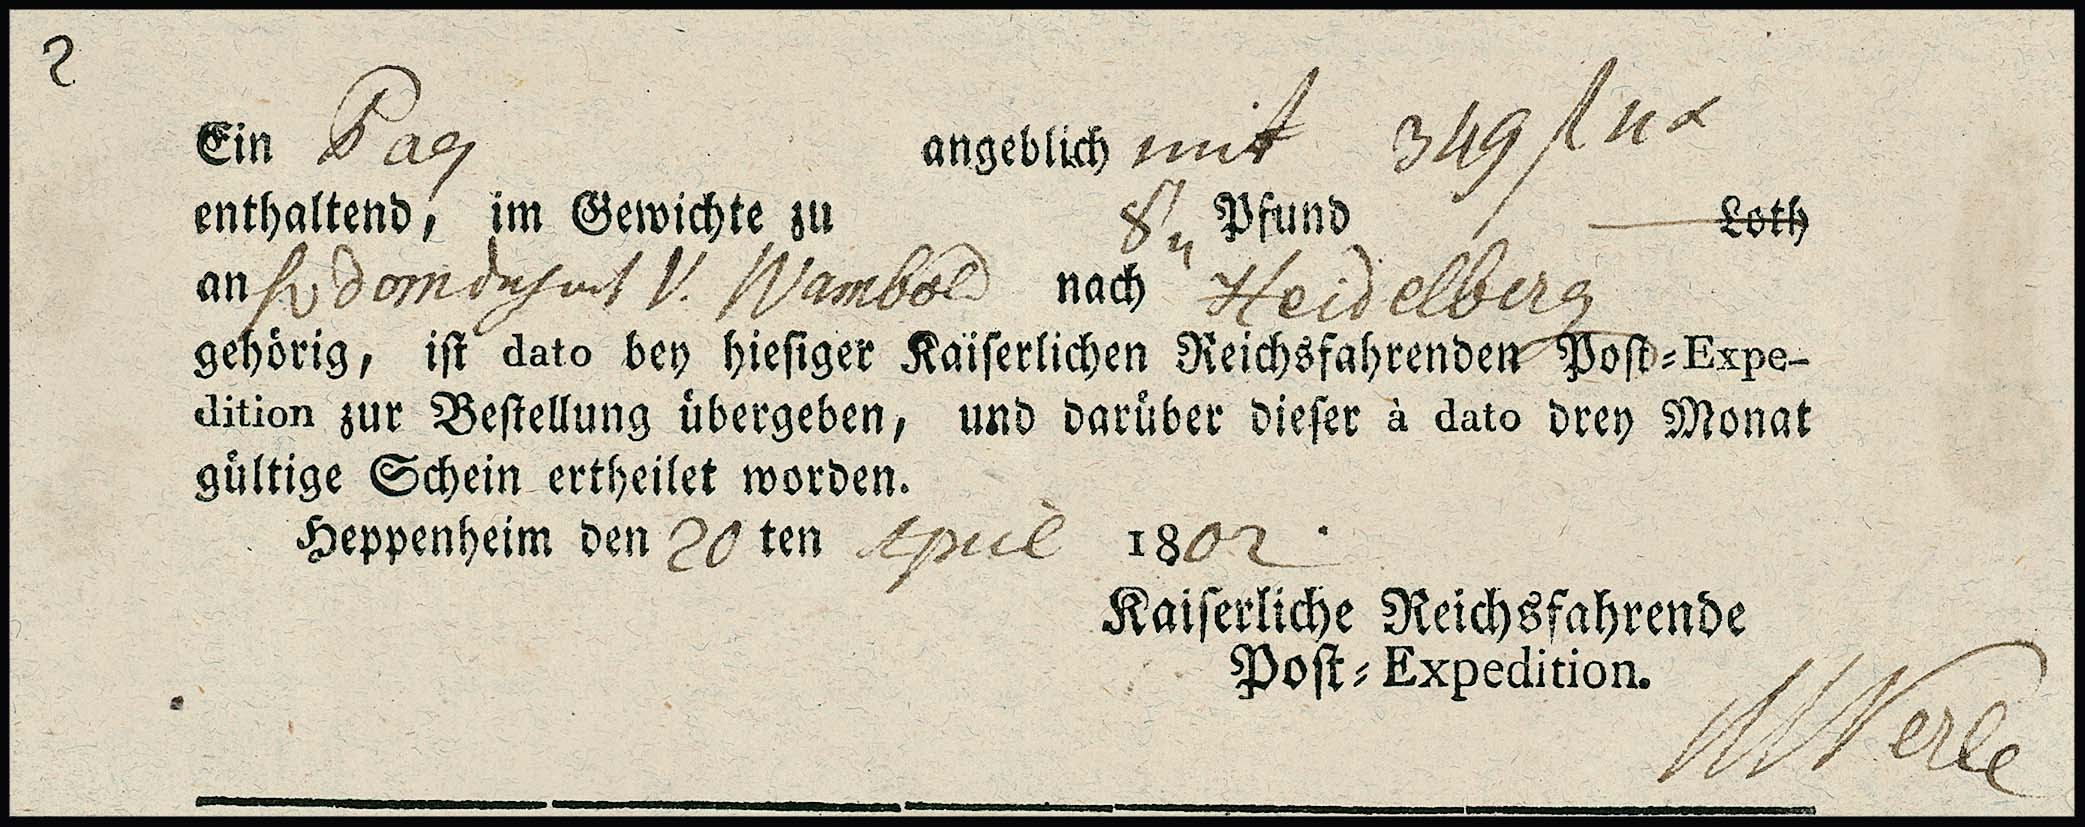 2
Ein Paq angeblich mit 349 f
enthaltend, im Gewichte zu 8 Pfund Loth
an V. Wambold nach Heidelberg
gehörig, ist dato bey hiesiger Kaiserlichen Reichsfahrenden Post-Expe-
dition zur Bestellung übergeben, und darüber dieser à dato drey Monat
gültige Schein ertheilet worden.
Heppenheim den 20 ten April 1802.
Kaiserliche Reichsfahrende
Post-Expedition.